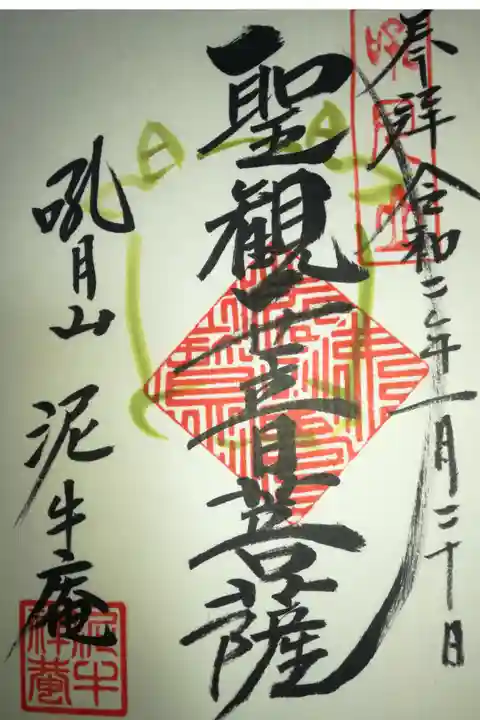 奉拝 令和二年一月二十日
聖観世音菩薩
吼月山 泥牛庵
吼月山
泥牛庵